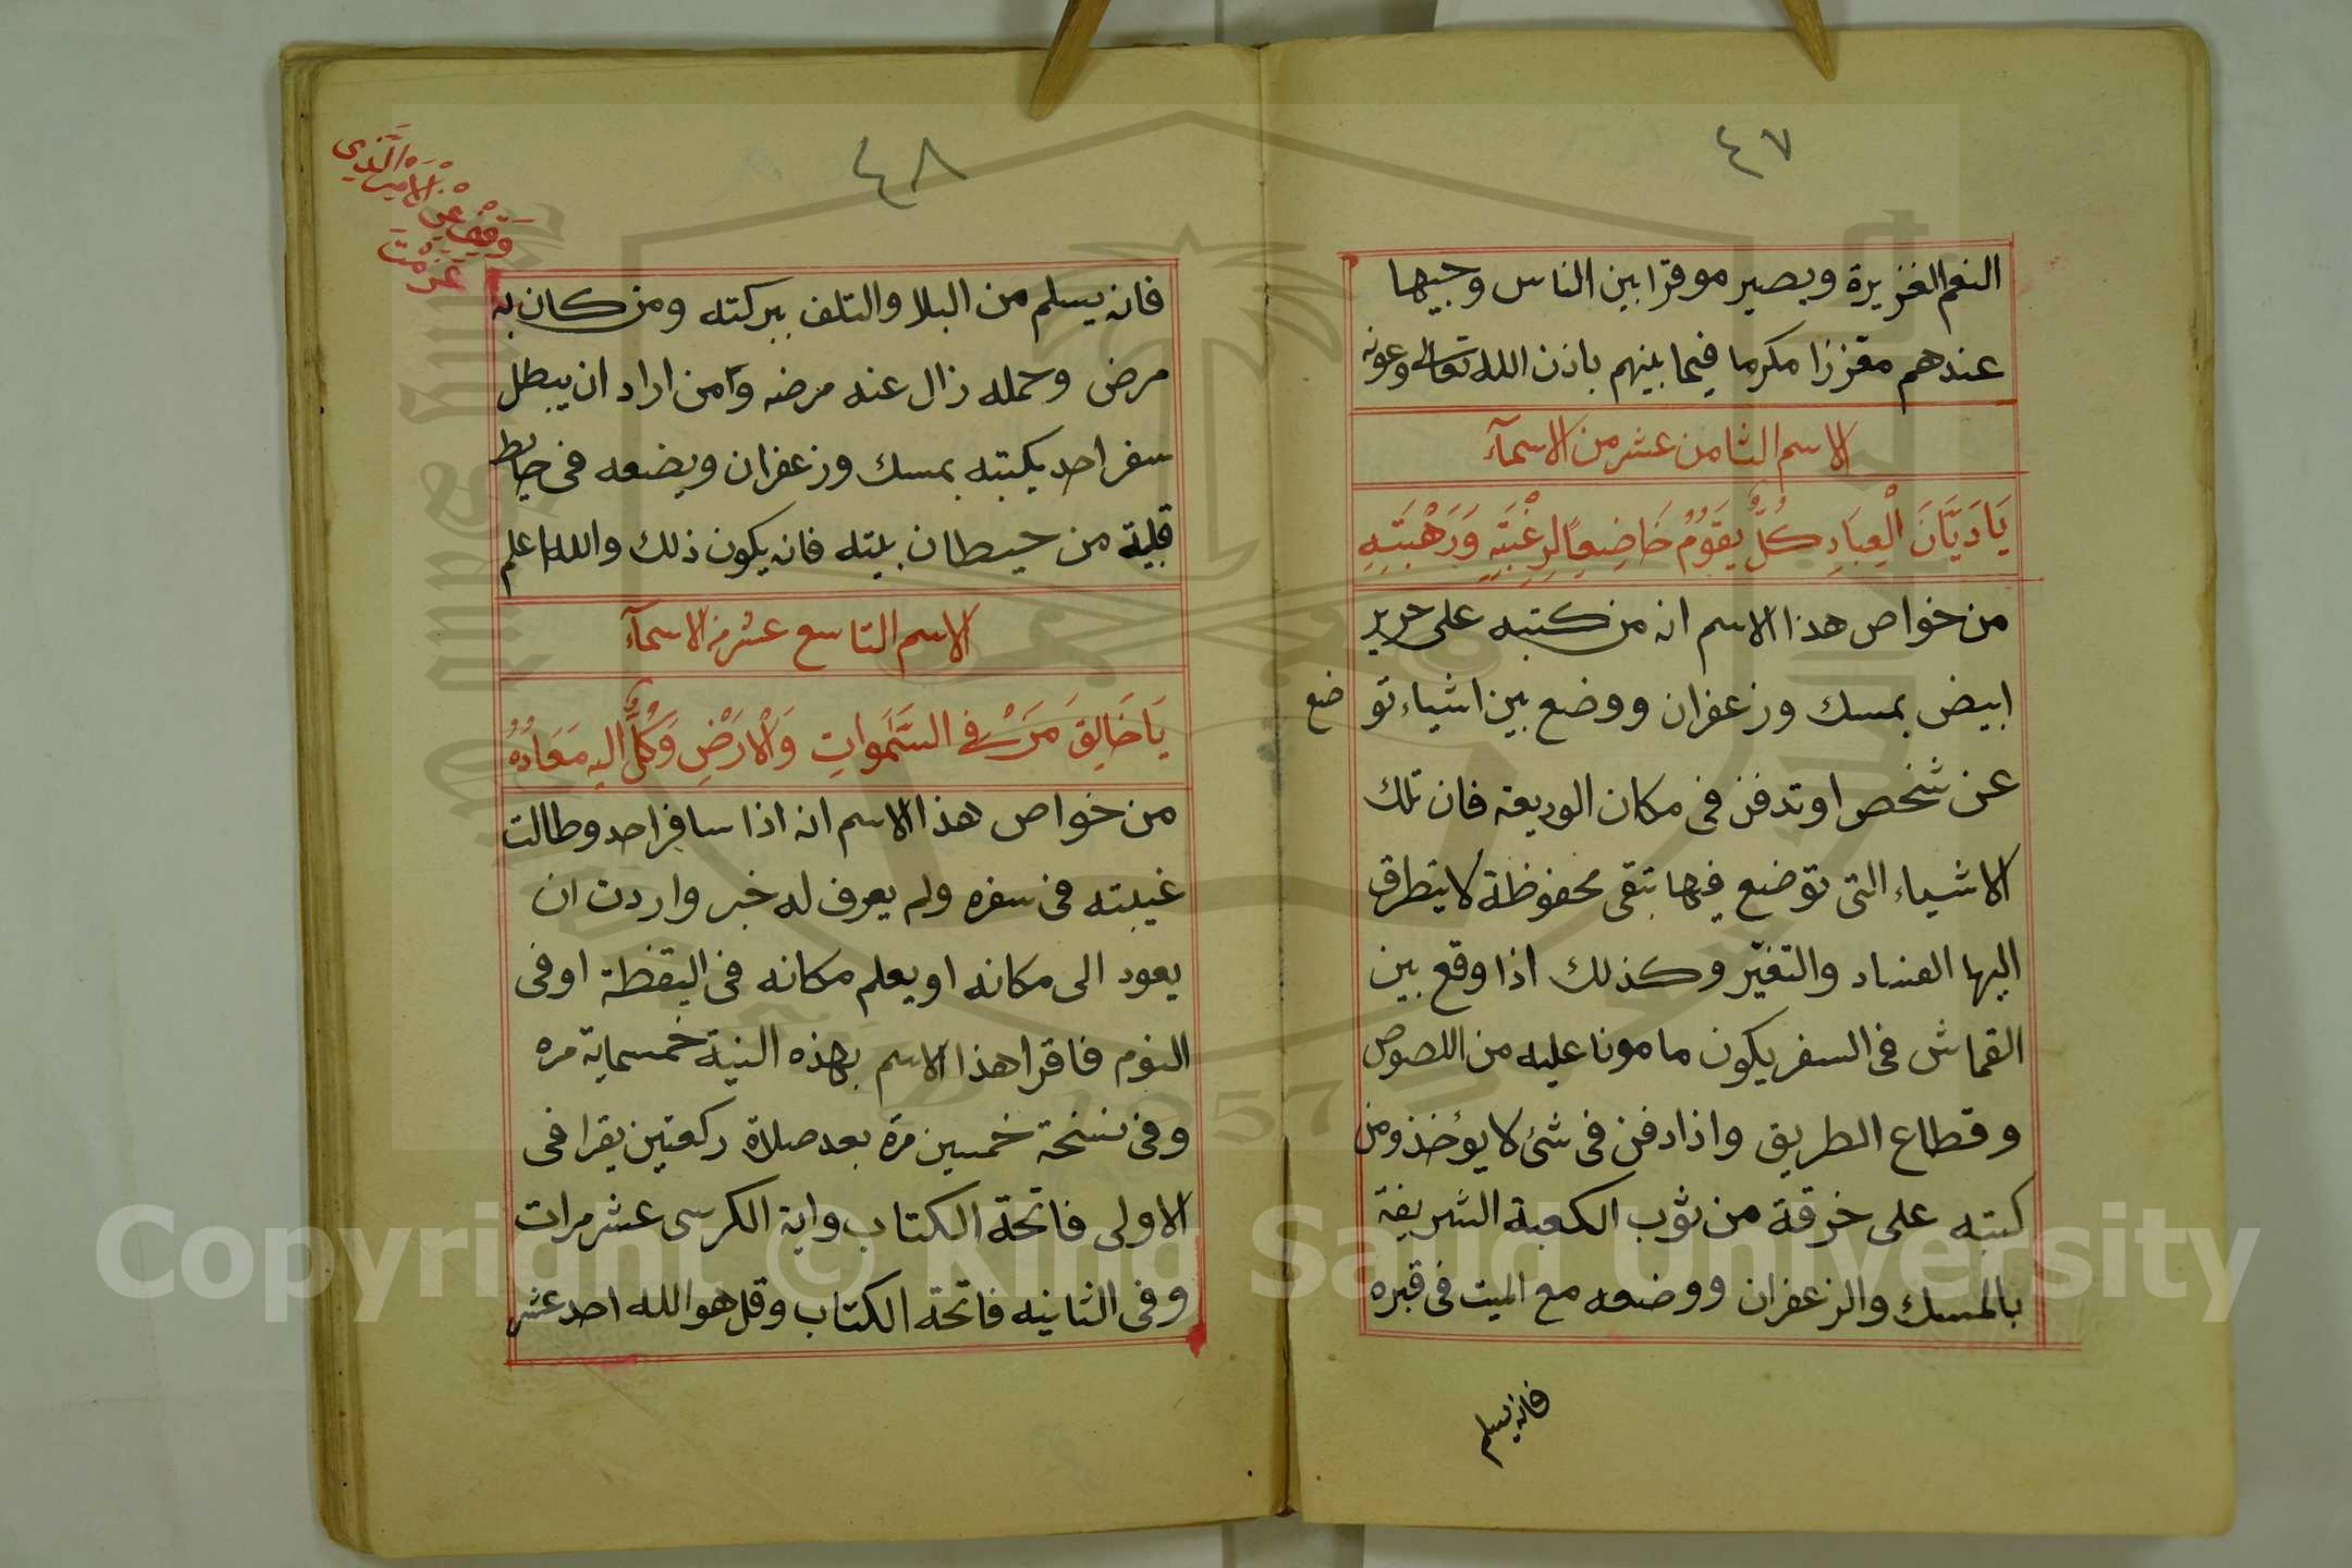 ٤٧
النعم الغزيرة ويصير موقرا بين الناس وجيها
عندهم مقززا مكرما فيما بينهم باذن الله تعالى وعونه
الاسم الثامن عشر من الاسمآء
يَا دَيَّانَ الْعِبَادِ كُلٌّ يَقُومُ خَاضِعًا لِرَغْبَتِهِ وَرَهْبَتِهِ
من خواص هذا الاسم انه من كتبه على حرير
ابيض بمسك وزعفران ووضع بين اشياء تو ضع
عن شخص او تدفن فى مكان الوديعة فان تلك
الاشياء التى توضع فيها تبقى محفوظة لا يتطرق
اليها الفساد والتغيّر وكذلك اذا وقع بين
القماش فى السفر يكون مامونا عليه من اللصوص
وقطاع الطريق واذا دفن فى شئ لا يؤخذ ومن
كتبه على خرقة من ثوب الكعبة الشريفة
بالمسك والزعفران ووضعه مع الميت فى قبره
فانه يسلم
٤٨
فانه يسلم من البلا والتلف ببركته ومن كان به
مرض وحمله زال عنه مرضه وامن اراد ان يبطل
سفر احد يكتبه بمسك وزعفران ويضعه فى حايط
قبلية من حيطان بيته فانه يكون ذلك والله اعلم
الاسم التاسع عشر من الاسمآء
يَا خَالِقَ مَنْ فِي السَّمَواتِ وَالْارَضِ وَكُلٌّ اليه مَعَادُهُ
من خواص هذا الاسم انه اذا سافر احد وطالت
غيبته فى سفره ولم يعرف له خبر واردت ان
يعود الى مكانه او يعلم مكانه فى اليقظة او فى
النوم فاقرا هذا الاسم بهذه النية خمسماية مره
وفى نسخة خمسين مرة بعد صلاة ركعتين يقرا فى
الاولى فاتحة الكتاب واية الكرسى عشر مرات
وفى الثانيه فاتحة الكتاب وقل هو الله احد عشر
Copyright © King Saud University
1957